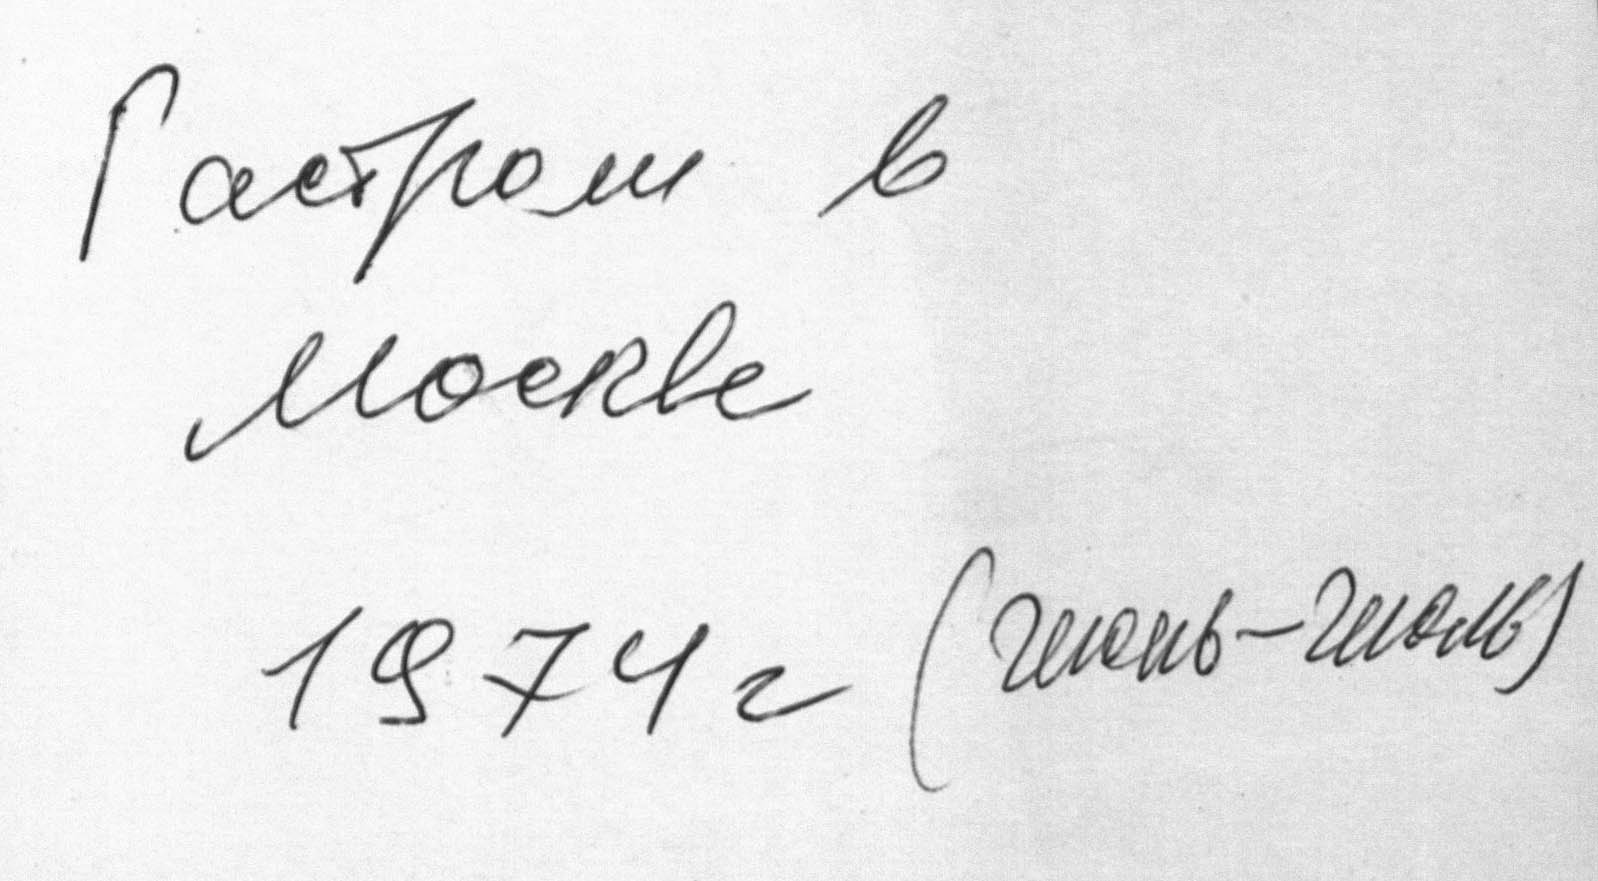 Гастроли в
Москве
1974 г (июнь-июль)